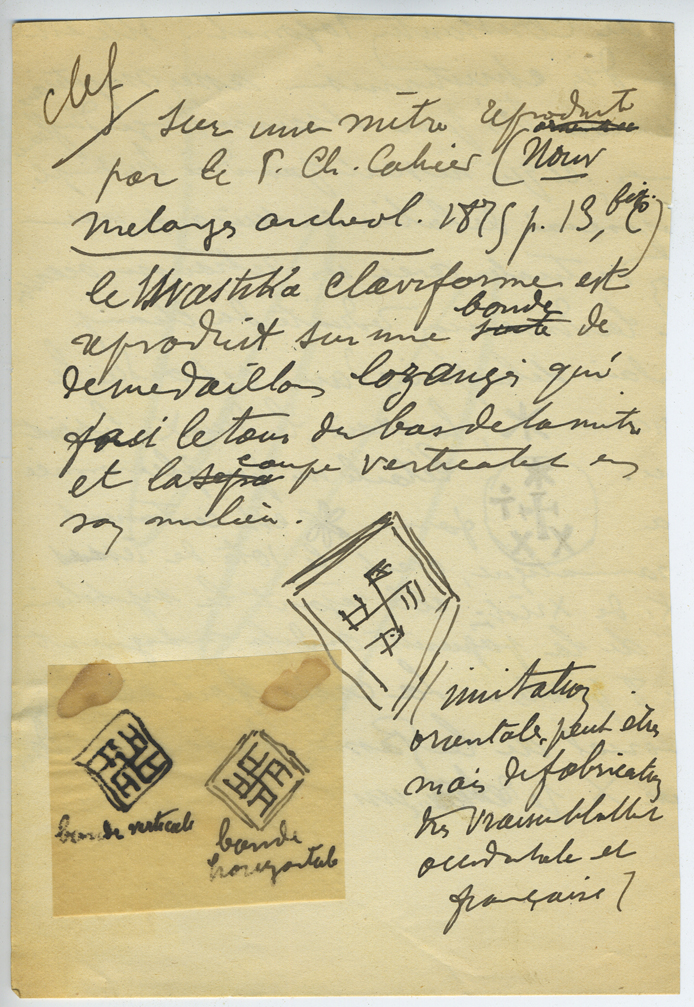 clef
sur une mitre reproduite
par le P. Ch. Cahier (Nouv
Melanges archeol. 1875 p. 13, fig. )
le Swastika claviforme est
reproduit sur une bande de
de medaillons lozangés qui
fait le tour du bas de la mitre
et la coupe verticalet en
son milieu.
(imitation
orientale, peut etre
mais de fabrication
très vraisemblablet
occidentale et
française)
bande verticale
bande
horizontale